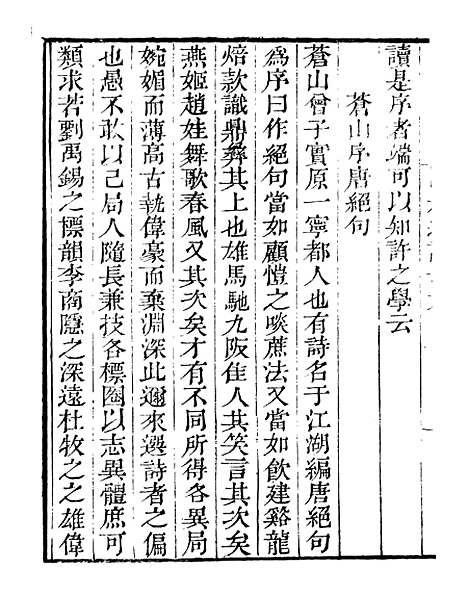 讀是序者端可以知許之學云
蒼山序唐絕句
蒼山曾子實原一寧都人也有詩名于江湖編唐絕句
爲序曰作絕句當如顧愷之啖蔗法又當如飮建谿龍
焙款識鼎彞其上也雄馬馳九阪佳人其笑言其次矣
燕姬趙娃舞歌春風又其次矣才有不同所得各異局
婉媚而薄高古兢偉豪而棄淵深此邇來選詩者之偏
也愚不敢以己局人隨長兼技各標圈以志異體庶可
類求若劉禹錫之標韻李商隱之深遠杜牧之之雄偉